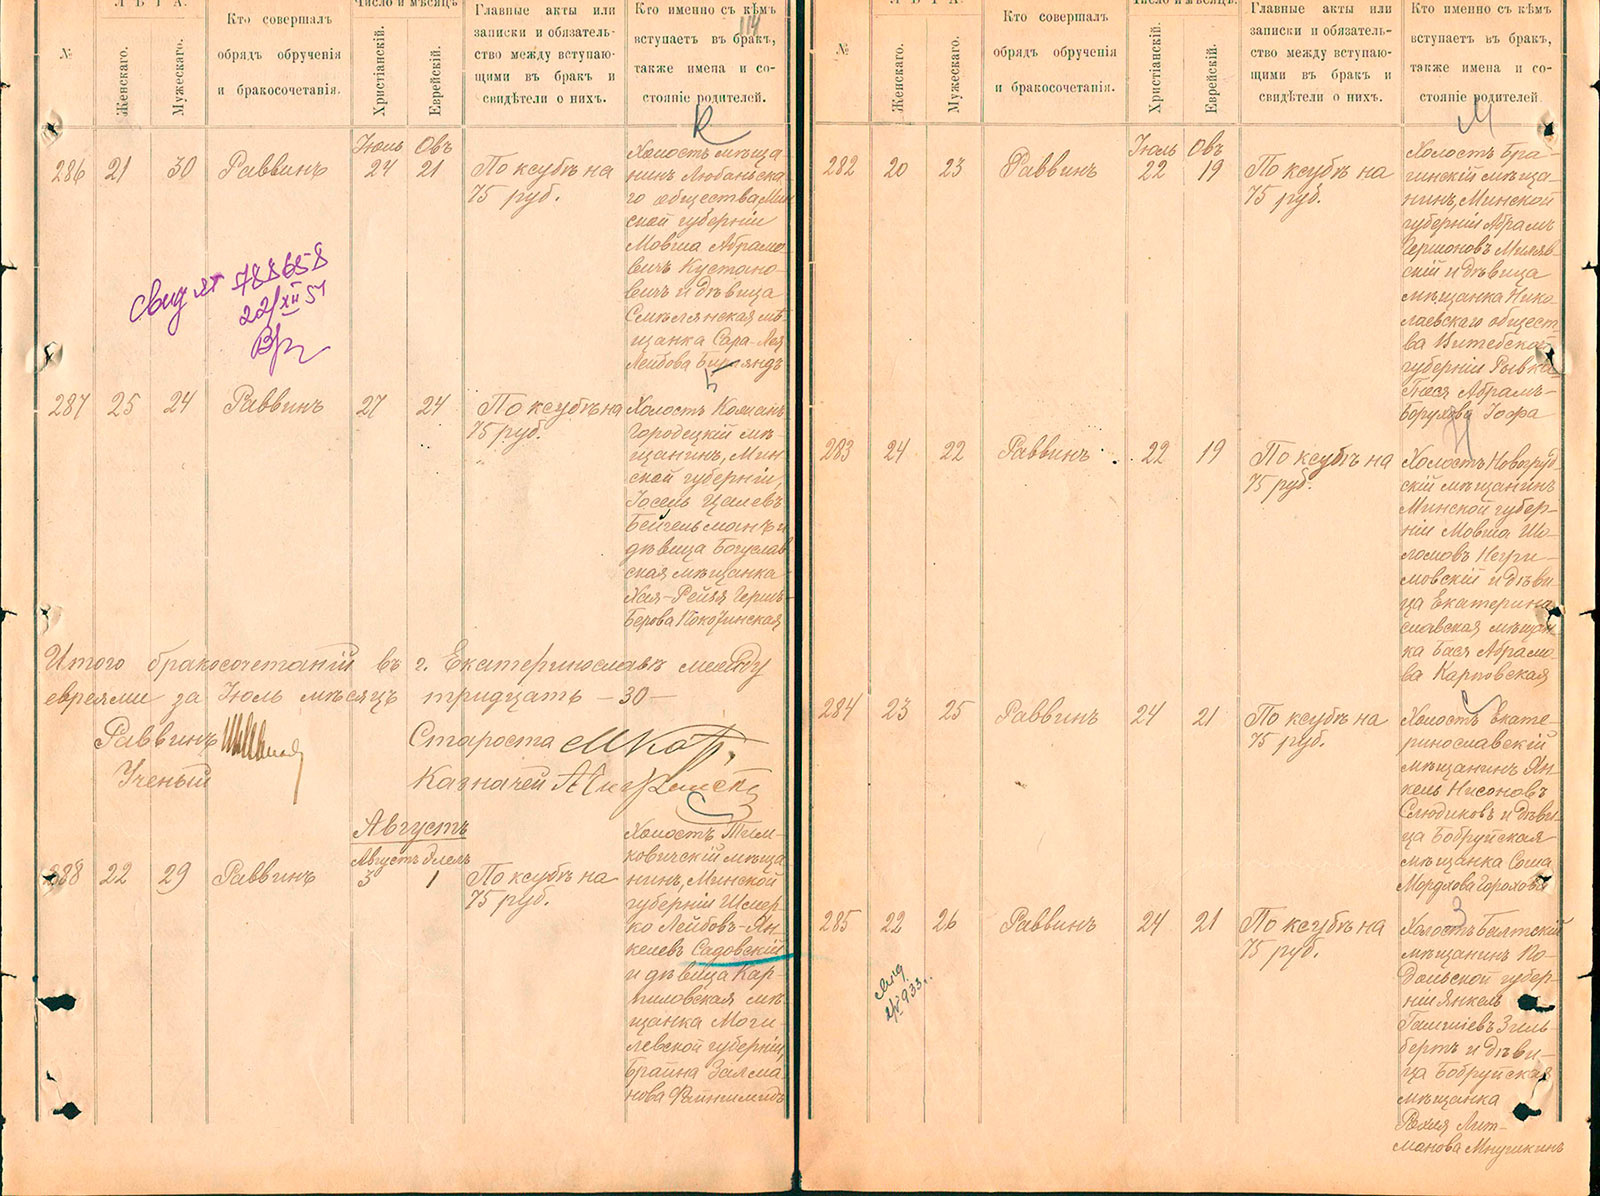 ЛѢТА.
№
Женскаго.
Мужескаго.
Кто совершалъ
обрядъ обрученія
и бракосочетанія.
Число и мѣсяцъ
Христіанскій.
Еврейскій.
Главные акты или
записки и обязатель-
ство между вступаю-
щими въ бракъ и
свидѣтели о нихъ.
Кто именно съ кѣмъ
вступаетъ въ бракъ,
также имена и со-
стояніе родителей.
114
К
Іюль Овъ
286 21 30 Раввинъ 24 21 По ксубѣ на
75 руб.
Холостъ мѣща-
нинъ Любаньска-
го общества Мин
ской губерніи
Мовша Абрамо-
вичъ Кустано-
вичъ и дѣвица
Смѣлянская мѣ-
щанка Сара-Лея
Лейбова
Свид № 788658
22/XII 51
Б
287 25 24 Раввинъ 27 24 По ксубѣ на
75 руб.
Холостъ Кожан-
Городецкій мѣ-
щанинъ, Мин
ской губерніи,
Іосель Цалевъ
Бейгельманъ и
дѣвица Богуслав
ская мѣщанка
Хая-Рейзя Герш-
Берова
Итого бракосочетаній въ г. Екатеринославѣ между
евреями за Іюль мѣсяцъ тридцать —30—
Раввинъ
Староста
Ученый
Казначей
С
Августъ
Августъ Элелъ
288 22 29 Раввинъ 3 1 По ксубѣ на
75 руб.
Холостъ Тим-
ковичскій мѣща
нинъ, Минской
губерніи Шмер-
ко Лейбовъ-Ян-
келевъ Садовскій
и дѣвица Кар-
пиловская мѣ-
щанка Моги-
левской губерніи,
Брайна Залма-
нова
ЛѢТА.
№
Женскаго.
Мужескаго.
Кто совершалъ
обрядъ обрученія
и бракосочетанія.
Число и мѣсяцъ.
Христіанскій.
Еврейскій.
Главные акты или
записки и обязатель-
ство между вступаю-
щими въ бракъ и
свидѣтели о нихъ.
Кто именно съ кѣмъ
вступаетъ въ бракъ,
также имена и со-
стояніе родителей.
М
Іюль Овъ
282 20 23 Раввинъ 22 19 По ксубѣ на
75 руб.
Холостъ Бра-
гинскій мѣща-
нинъ, Минской
губерніи Абрамъ
Гершоновъ
и дѣвица
мѣщанка Нико
лаевскаго общест-
ва Витебской
губерніи Рывка-
Абрамъ-
Борухова Іоффа
Н
283 24 22 Раввинъ 22 19 По ксубѣ на
75 руб.
Холостъ Новогруд-
скій мѣщанинъ
Минской губер-
ніи Мовша Шо-
ломовъ Негри-
мовскій и дѣви
ца Екатерино
славская мѣщан-
ка Бася Абрамо-
ва Карповская
С
284 23 25 Раввинъ 24 21 По ксубѣ на
75 руб.
Холостъ Екате-
ринославскій
мѣщанинъ Ян-
кель Нисоновъ
Слюдиковъ и дѣви-
ца Бобруйская
мѣщанка Соша
Мордхова Горохова
З
285 22 26 Раввинъ 24 21 По ксубѣ на
75 руб.
Холостъ Балтскій
мѣщанинъ По-
дольской губер-
ніи Янкель
Зиль-
бертъ и дѣви-
ца Бобруйская
мѣщанка
Рохля Лит-
манова Мнушкинъ
933